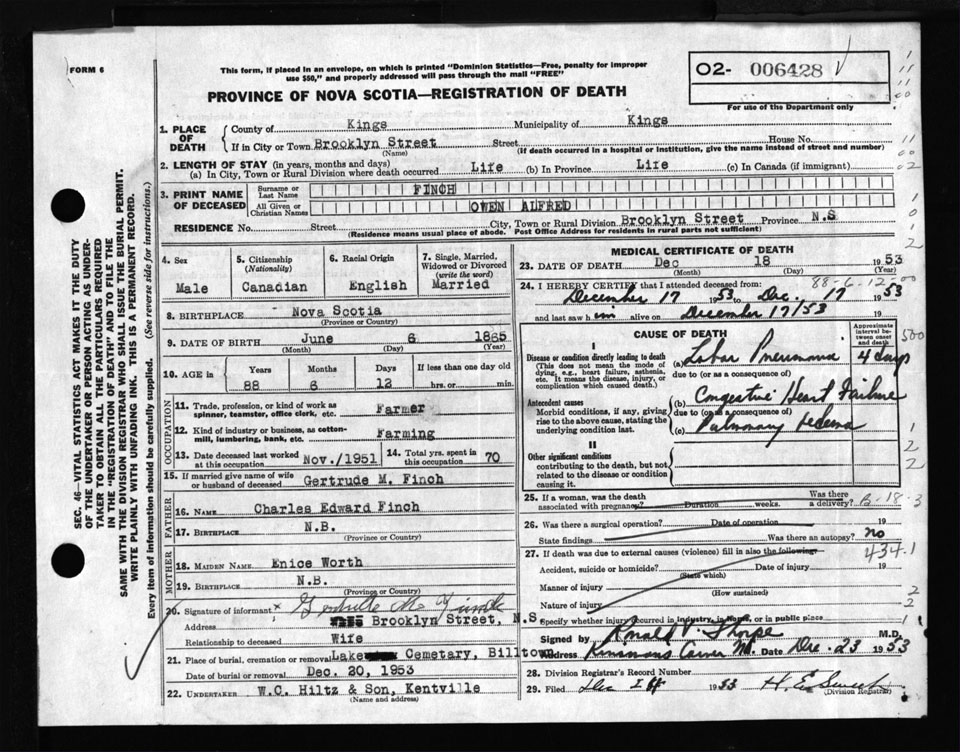 FORM 6
This form, if placed in an envelope, on which is printed "Dominion Statistics—Free, penalty for improper
use $50," and properly addressed will pass through the mail "FREE"
02- 006428
For use of the Department only
PROVINCE OF NOVA SCOTIA—REGISTRATION OF DEATH
SEC. 46—VITAL STATISTICS ACT MAKES IT THE DUTY
OF THE UNDERTAKER OR PERSON ACTING AS UNDER-
TAKER TO OBTAIN ALL THE PARTICULARS REQUIRED
IN THE "REGISTRATION OF DEATH" AND TO FILE THE
SAME WITH THE DIVISION REGISTRAR WHO SHALL ISSUE THE BURIAL PERMIT.
WRITE PLAINLY WITH UNFADING INK. THIS IS A PERMANENT RECORD.
Every item of information should be carefully supplied. (See reverse side for instructions.)
1. PLACE OF DEATH County of Kings Municipality of Kings
If in City or Town Brooklyn Street Street House No.
(Name) (If death occurred in a hospital or institution, give the name instead of street and number)
2. LENGTH OF STAY (in years, months and days)
(a) In City, Town or Rural Division where death occurred Life (b) In Province Life (c) In Canada (if immigrant)
3. PRINT NAME OF DECEASED Surname or Last Name FINCH
All Given or Christian Names OWEN ALFRED
RESIDENCE No. Street City, Town or Rural Division Brooklyn Street Province N.S
(Residence means usual place of abode. Post Office Address for residents in rural parts not sufficient)
4. Sex 5. Citizenship (Nationality) 6. Racial Origin 7. Single, Married, Widowed or Divorced (write the word)
Male Canadian English Married
8. BIRTHPLACE Nova Scotia
(Province or Country)
9. DATE OF BIRTH June 6 1865
(Month) (Day) (Year)
10. AGE Years Months Days If less than one day old
88 6 12 hrs. or min.
OCCUPATION
11. Trade, profession, or kind of work as
spinner, teamster, office clerk, etc. Farmer
12. Kind of industry or business, as cotton-
mill, lumbering, bank, etc. Farming
13. Date deceased last worked at this occupation Nov./1951 14. Total yrs. spent in this occupation 70
15. If married give name of wife
or husband of deceased Gertrude M. Finch
FATHER
16. NAME Charles Edward Finch
17. BIRTHPLACE N.B.
(Province or Country)
MOTHER
18. MAIDEN NAME Enice Worth
19. BIRTHPLACE N.B.
(Province or Country)
20. Signature of informant x Gertrude M. Finch
Address Brooklyn Street, N.S.
Relationship to deceased Wife
21. Place of burial, cremation or removal Lake Cemetary, Billtown
Date of burial or removal Dec. 20, 1953
22. UNDERTAKER W.C. Hiltz & Son, Kentville
(Name and address)
MEDICAL CERTIFICATE OF DEATH
23. DATE OF DEATH Dec 18 1953
(Month) (Day) (Year)
88-6-12
24. I HEREBY CERTIFY that I attended deceased from:
December 17 1953 to Dec. 17 1953
and last saw him alive on December 17/53
CAUSE OF DEATH
Approximate interval between onset and death
I
Disease or condition directly leading to death
(This does not mean the mode of
dying, e.g., heart failure, asthenia,
etc. It means the disease, injury, or
complication which caused death.)
(a) Lobar Pneumonia 4 days
due to (or as a consequence of)
Antecedent causes
Morbid conditions, if any, giving
rise to the above cause, stating the
underlying condition last.
(b) Congestive Heart Failure
due to (or as a consequence of)
(c) Pulmonary Edema
II
Other significant conditions
contributing to the death, but not
related to the disease or condition
causing it.
25. If a woman, was the death Was there
associated with pregnancy? Duration weeks. a delivery?
B-18-3
26. Was there a surgical operation? Date of operation 19
State findings Was there an autopsy? no
27. If death was due to external causes (violence) fill in also the following:
434.1
Accident, suicide or homicide? Date of injury 19
(State which)
Manner of injury
(How sustained)
Nature of injury
Specify whether injury occurred in industry, in home, or in public place
Signed by Ronald V. Thorpe M.D.
Address Kinsmans Corner NS Date Dec. 23 1953
28. Division Registrar's Record Number
29. Filed Dec 1953 H. E. Sweet
(Division Registrar)